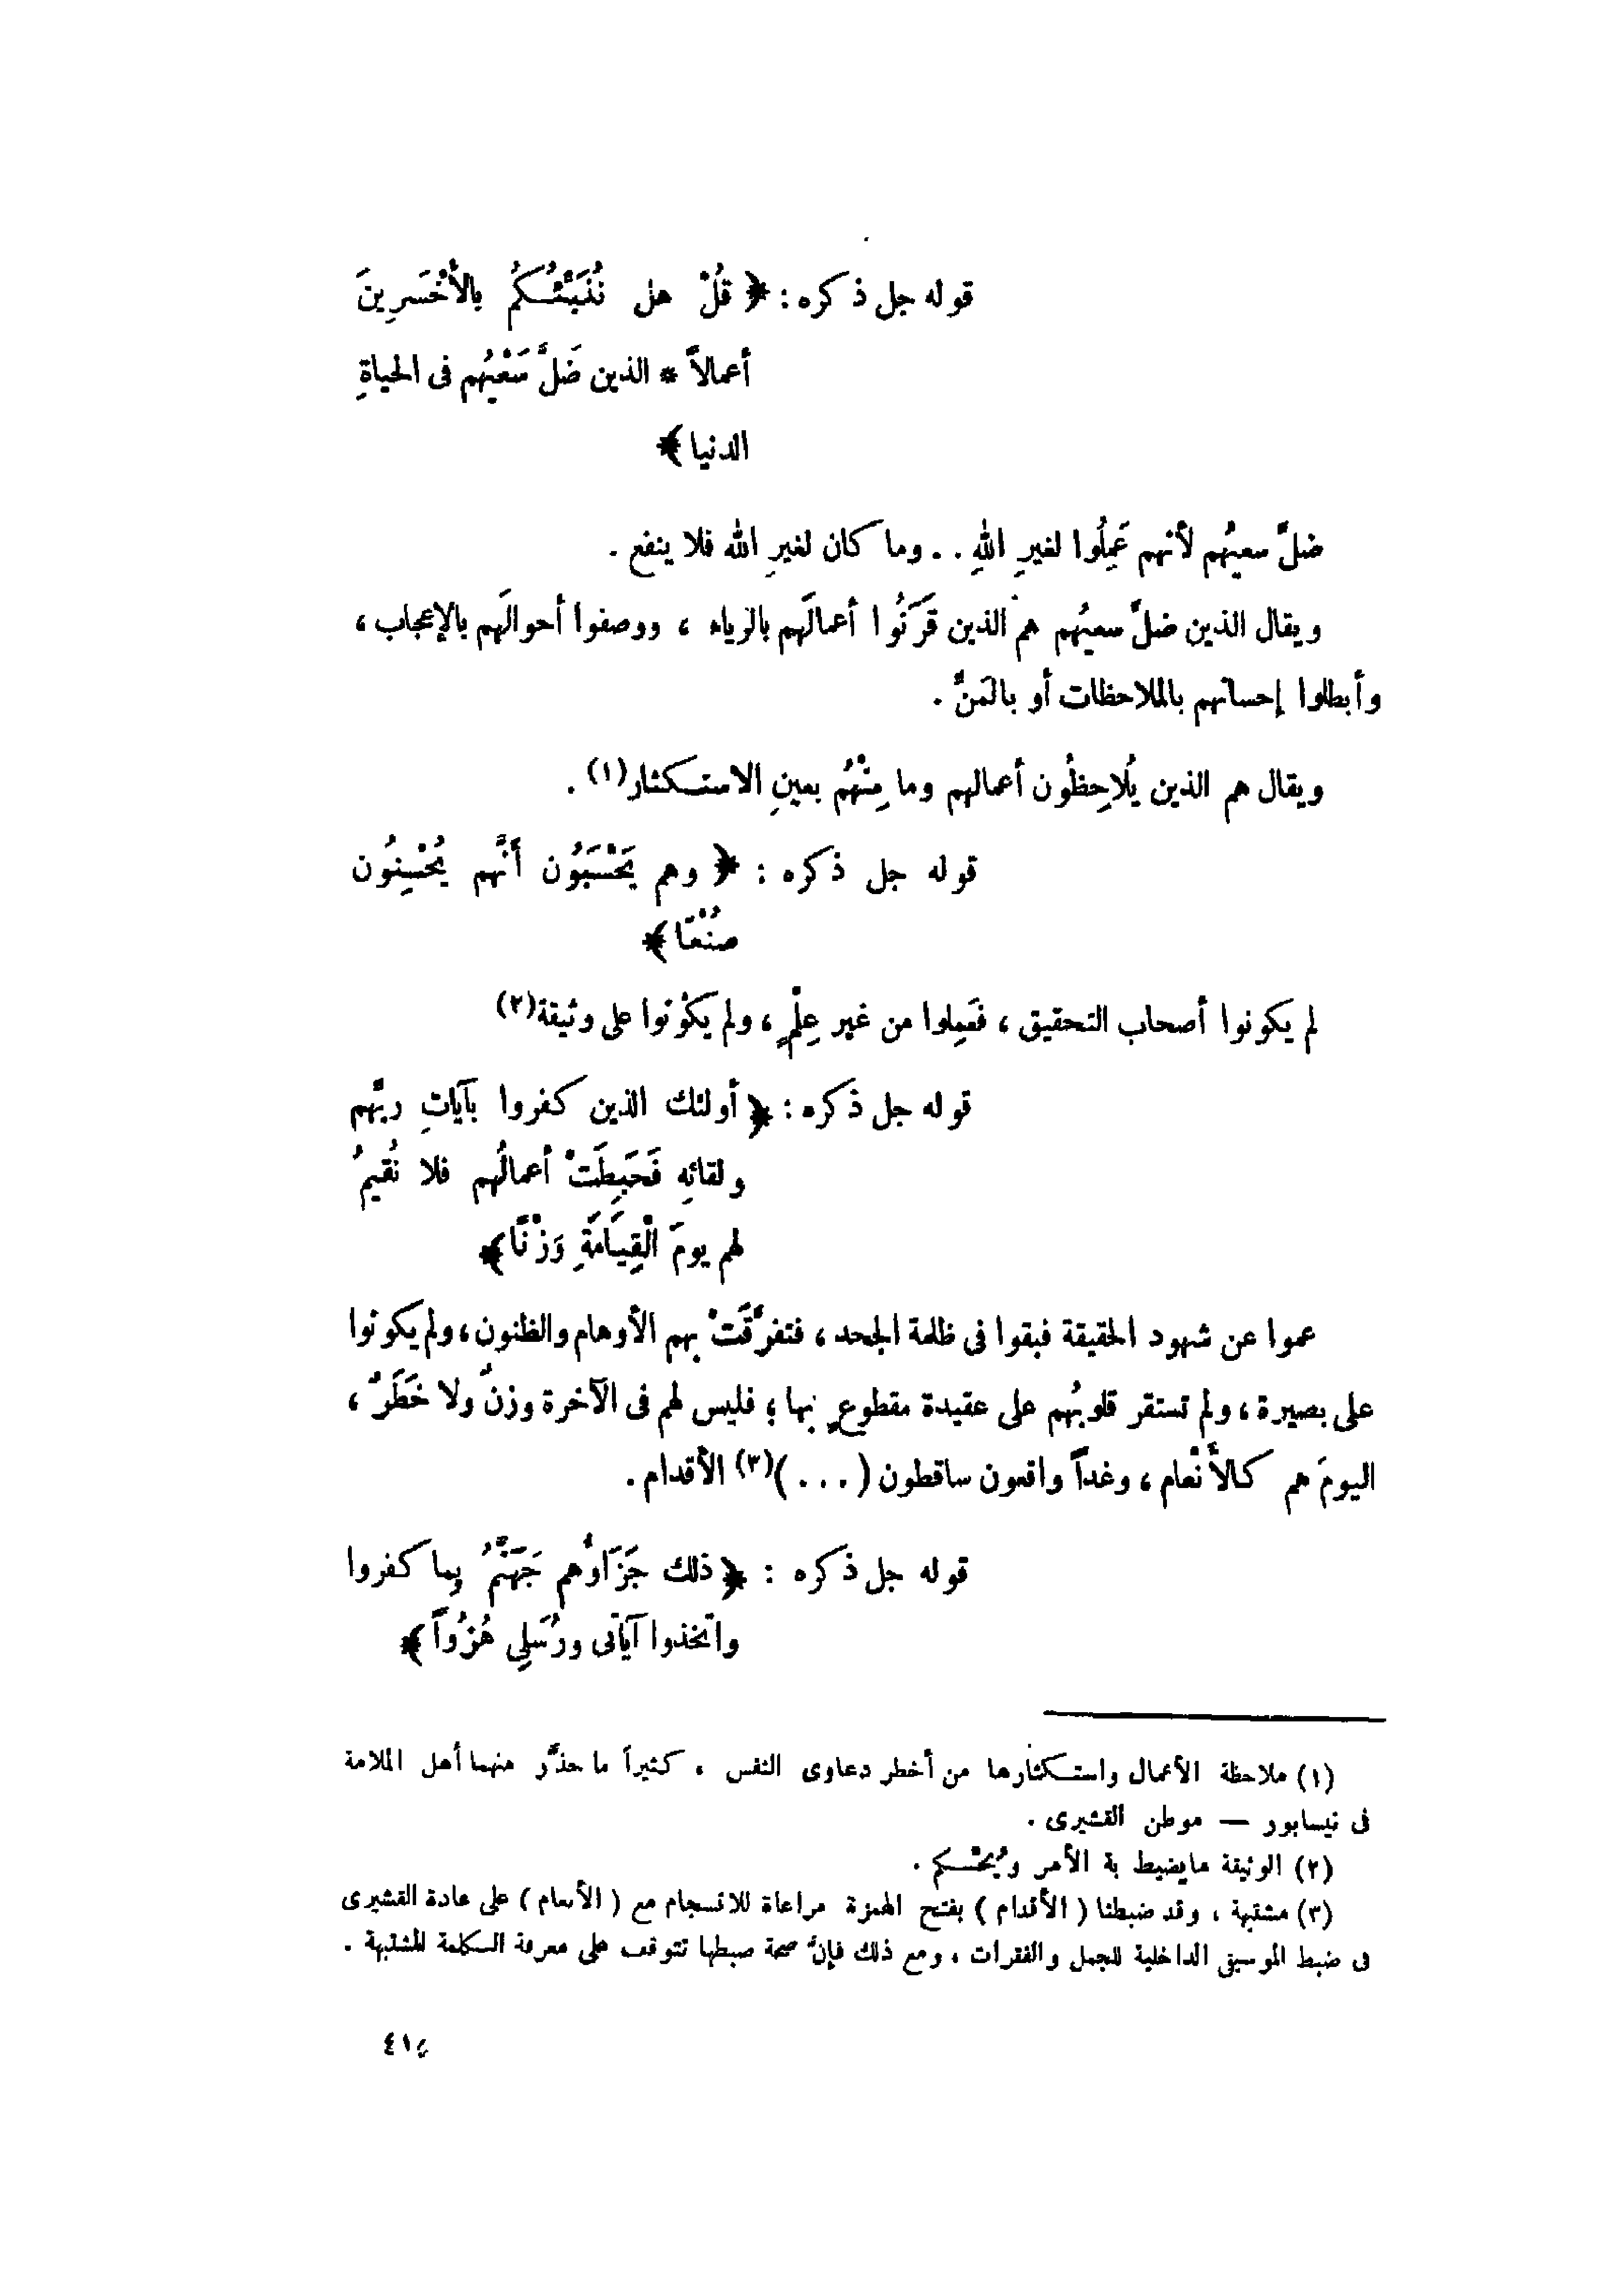 قوله جل ذكره : ﴿ قُلْ هل نُنَبِّئُكُمُ بالأَخْسَرِينَ
أعمالاً * الذين ضَلَّ سَعْيُهم فى الحياةِ
الدنيا ﴾
ضلَّ سعيُهم لأنهم عَمِلُوا لغيرِ اللهِ . . وما كان لغيرِ الله فلا ينفع .
ويقال الذين ضلَّ سعيُهم هم الذين قَرَنُوا أعمالَهم بالرياء ، ووصفوا أحوالَهم بالإعجاب ،
وأبطلوا إحسانَهم بالملاحظات أو بالمَنِّ .
ويقال هم الذين يُلاحِظُون أعمالهم وما مِنْهُم بعينِ الاستكثار(١) .
قوله جل ذكره : ﴿ وهم يَحْسَبُون أَنَّهم يُحْسِنُون
صُنْعًا ﴾
لم يكونوا أصحاب التحقيق ، فعَمِلوا من غير عِلْمٍ ، ولم يكونوا على وثيقة(٢)
قوله جل ذكره : ﴿ أولئك الذين كفروا بآياتِ ربِّهم
ولقائِه فَحَبِطَتْ أعمالُهم فلا نُقيمُ
لهم يومَ الْقِيَامَةِ وَزْنًا ﴾
عموا عن شهود الحقيقة فبقوا فى ظلمة الجحد ، فتفرَّقَتْ بهم الأوهام والظنون ، ولم يكونوا
على بصيرة ، ولم تستقر قلوبُهم على عقيدة مقطوعٍ بها ؛ فليس لهم فى الآخرة وزنٌ ولا خَطَرٌ ،
اليومَ هم كالأَنْعام ، وغداً واقعون ساقطون ( . . . )(٣) الأقدام .
قوله جل ذكره : ﴿ ذلك جَزَاؤُهم جَهَنَّمُ بِما كفروا
واتخذوا آياتى ورُسُلِى هُزُواً ﴾
(١) ملاحظة الأعمال واستكثارها من أخطر دعاوى النفس ، كثيراً ما حذَّر منهما أهل الملامة
فى نيسابور — موطن القشيرى .
(٢) الوثيقة مايضبط به الأمر ويُحْكم .
(٣) مشتبهة ، وقد ضبطنا ( الأقدام ) بفتح الهمزة مراعاة للانسجام مع ( الأنعام ) على عادة القشيرى
فى ضبط الموسيقى الداخلية للجمل والفقرات ، ومع ذلك فإنَّ صحة ضبطها تتوقف على معرفة الكلمة المشتبهة .